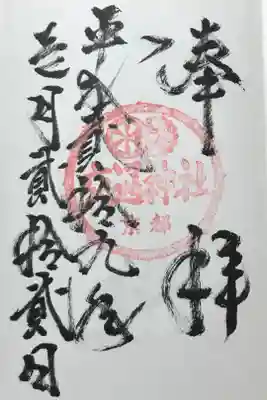 奉拝
平成貳拾九年
壱月貳拾貳日
神社
京都